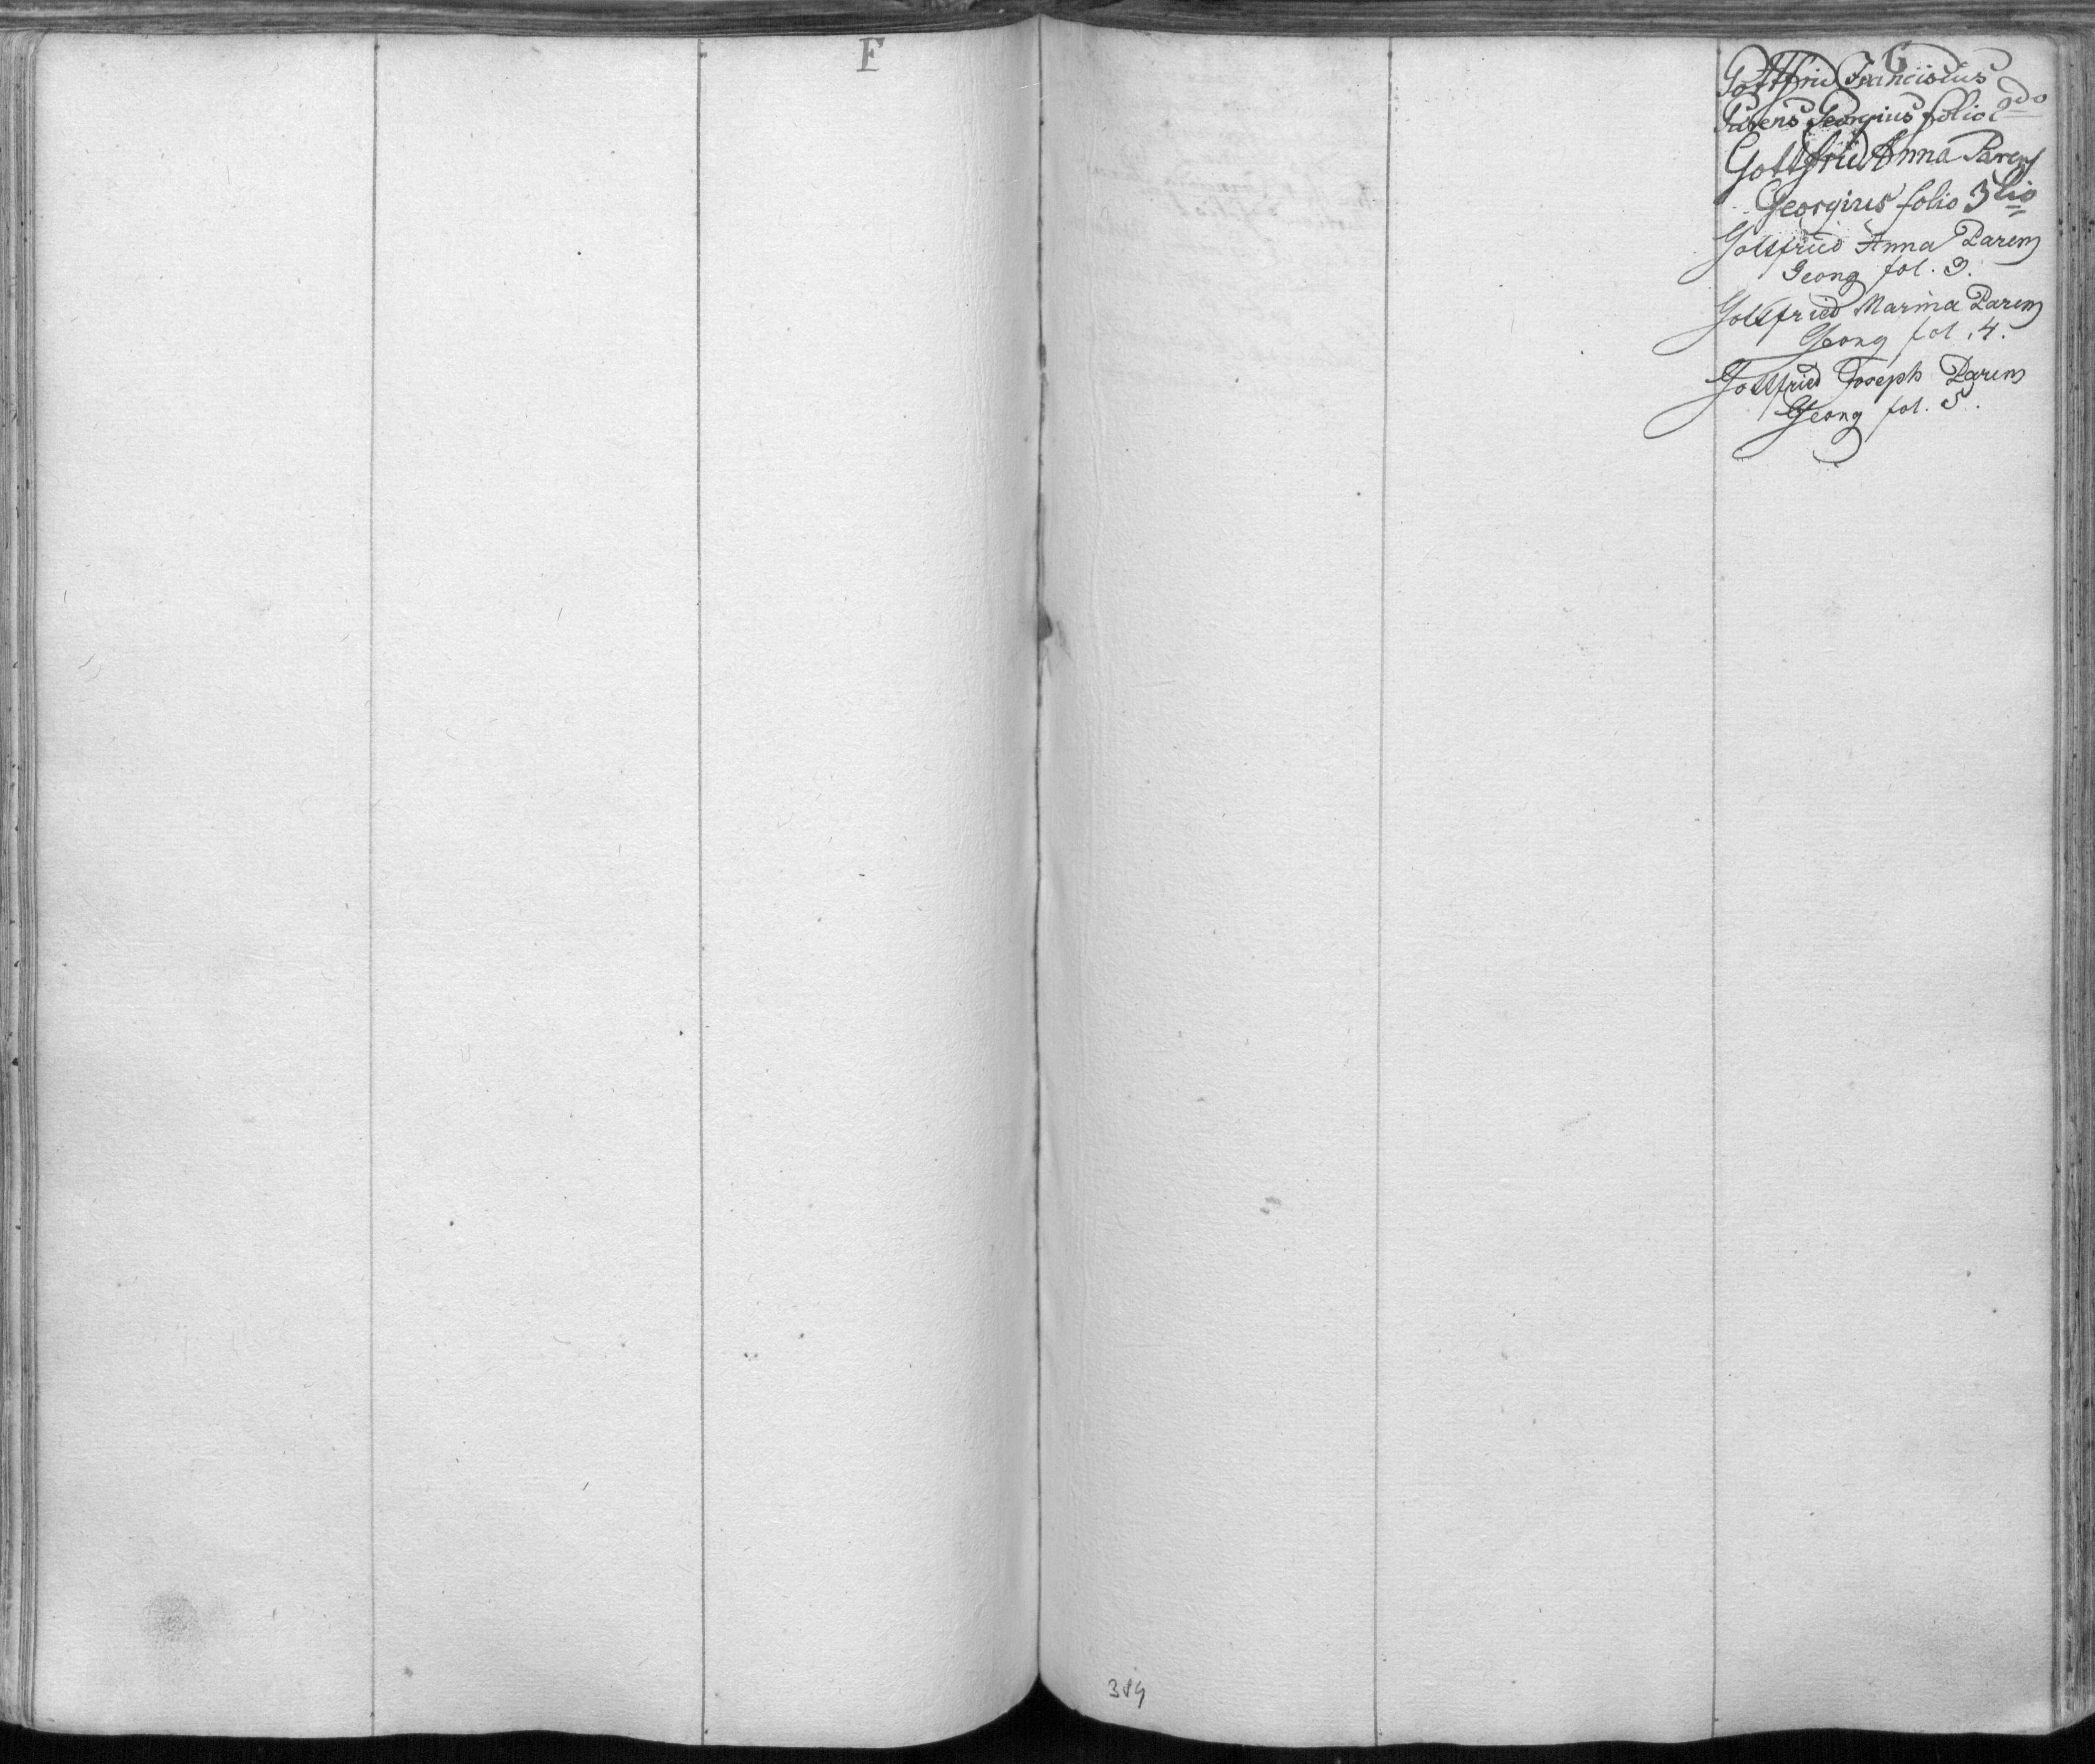 F
G
Gottfrid Franciscus
Parens Georgius folio 2do
Gottfried Anna Parens
Georgius folio 3tio
Gottfried Anna Parens
Georg fol. 3.
Gottfried Marina Parens
Georg fol. 4.
Gottfried Joseph Parens
Georg fol. 5.
384